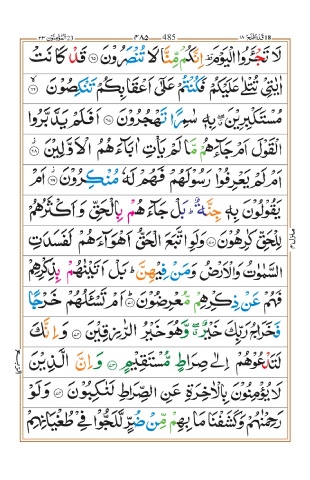 لَا تَجْـَٔرُوا الْيَوْمَ ۖ اِنَّكُمْ مِّنَّا لَا تُنْصَرُوْنَ ﴿۶۵﴾ قَدْ كَانَتْ
اٰيٰتِيْ تُتْلٰى عَلَيْكُمْ فَكُنْتُمْ عَلٰٓى اَعْقَابِكُمْ تَنْكِصُوْنَ ﴿۶۶﴾
مُسْتَكْبِرِيْنَ ۖ بِهٖ سٰمِرًا تَهْجُرُوْنَ ﴿۶۷﴾ اَفَلَمْ يَدَّبَّرُوا
الْقَوْلَ اَمْ جَآءَهُمْ مَّا لَمْ يَاْتِ اٰبَآءَهُمُ الْاَوَّلِيْنَ ﴿۶۸﴾
اَمْ لَمْ يَعْرِفُوْا رَسُوْلَهُمْ فَهُمْ لَهٗ مُنْكِرُوْنَ ﴿۶۹﴾ اَمْ
يَقُوْلُوْنَ بِهٖ جِنَّةٌ ۭ بَلْ جَآءَهُمْ بِالْحَقِّ وَاَكْثَرُهُمْ
لِلْحَقِّ كٰرِهُوْنَ ﴿۷۰﴾ وَلَوِ اتَّبَعَ الْحَقُّ اَهْوَآءَهُمْ لَفَسَدَتِ
السَّمٰوٰتُ وَالْاَرْضُ وَمَنْ فِيْهِنَّ ۭ بَلْ اَتَيْنٰهُمْ بِذِكْرِهِمْ
فَهُمْ عَنْ ذِكْرِهِمْ مُّعْرِضُوْنَ ﴿۷۱﴾ اَمْ تَسْـَٔلُهُمْ خَرْجًا
فَخَرَاجُ رَبِّكَ خَيْرٌ ۖ وَّهُوَ خَيْرُ الرّٰزِقِيْنَ ﴿۷۲﴾ وَاِنَّكَ
لَتَدْعُوْهُمْ اِلٰى صِرَاطٍ مُّسْتَقِيْمٍ ﴿۷۳﴾ وَاِنَّ الَّذِيْنَ
لَا يُؤْمِنُوْنَ بِالْاٰخِرَةِ عَنِ الصِّرَاطِ لَنٰكِبُوْنَ ﴿۷۴﴾ وَلَوْ
رَحِمْنٰهُمْ وَكَشَفْنَا مَا بِهِمْ مِّنْ ضُرٍّ لَّلَجُّوْا فِيْ طُغْيَانِهِمْ
485 ۴۸۵